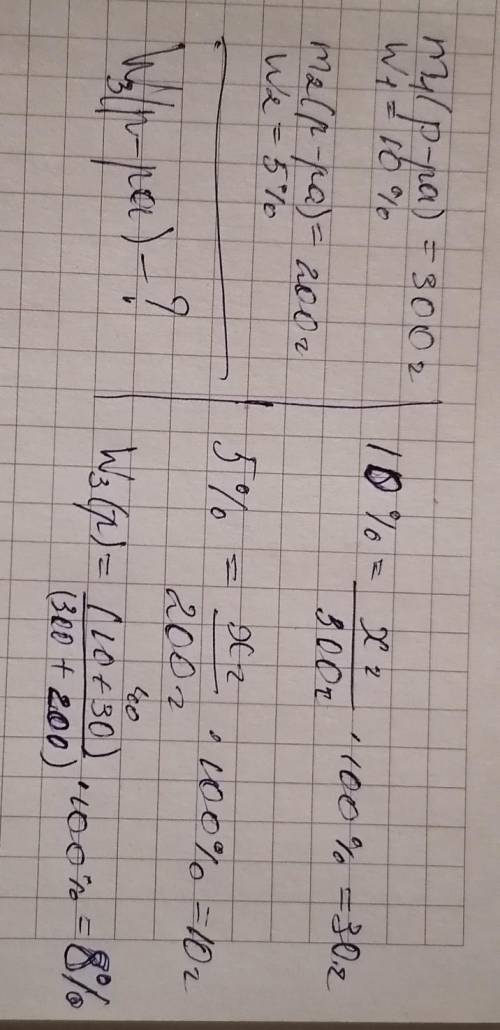 m1(р-ра) = 300 г
W1 = 10 %
m2(р-ра) = 200 г
W2 = 5%
W3(р-ра) - ?
10 % = x г / 300 г · 100 % = 30 г
5 % = x г / 200 г · 100 % = 10 г
40
W3(р) = (10 + 30) / (300 + 200) · 100 % = 8 %